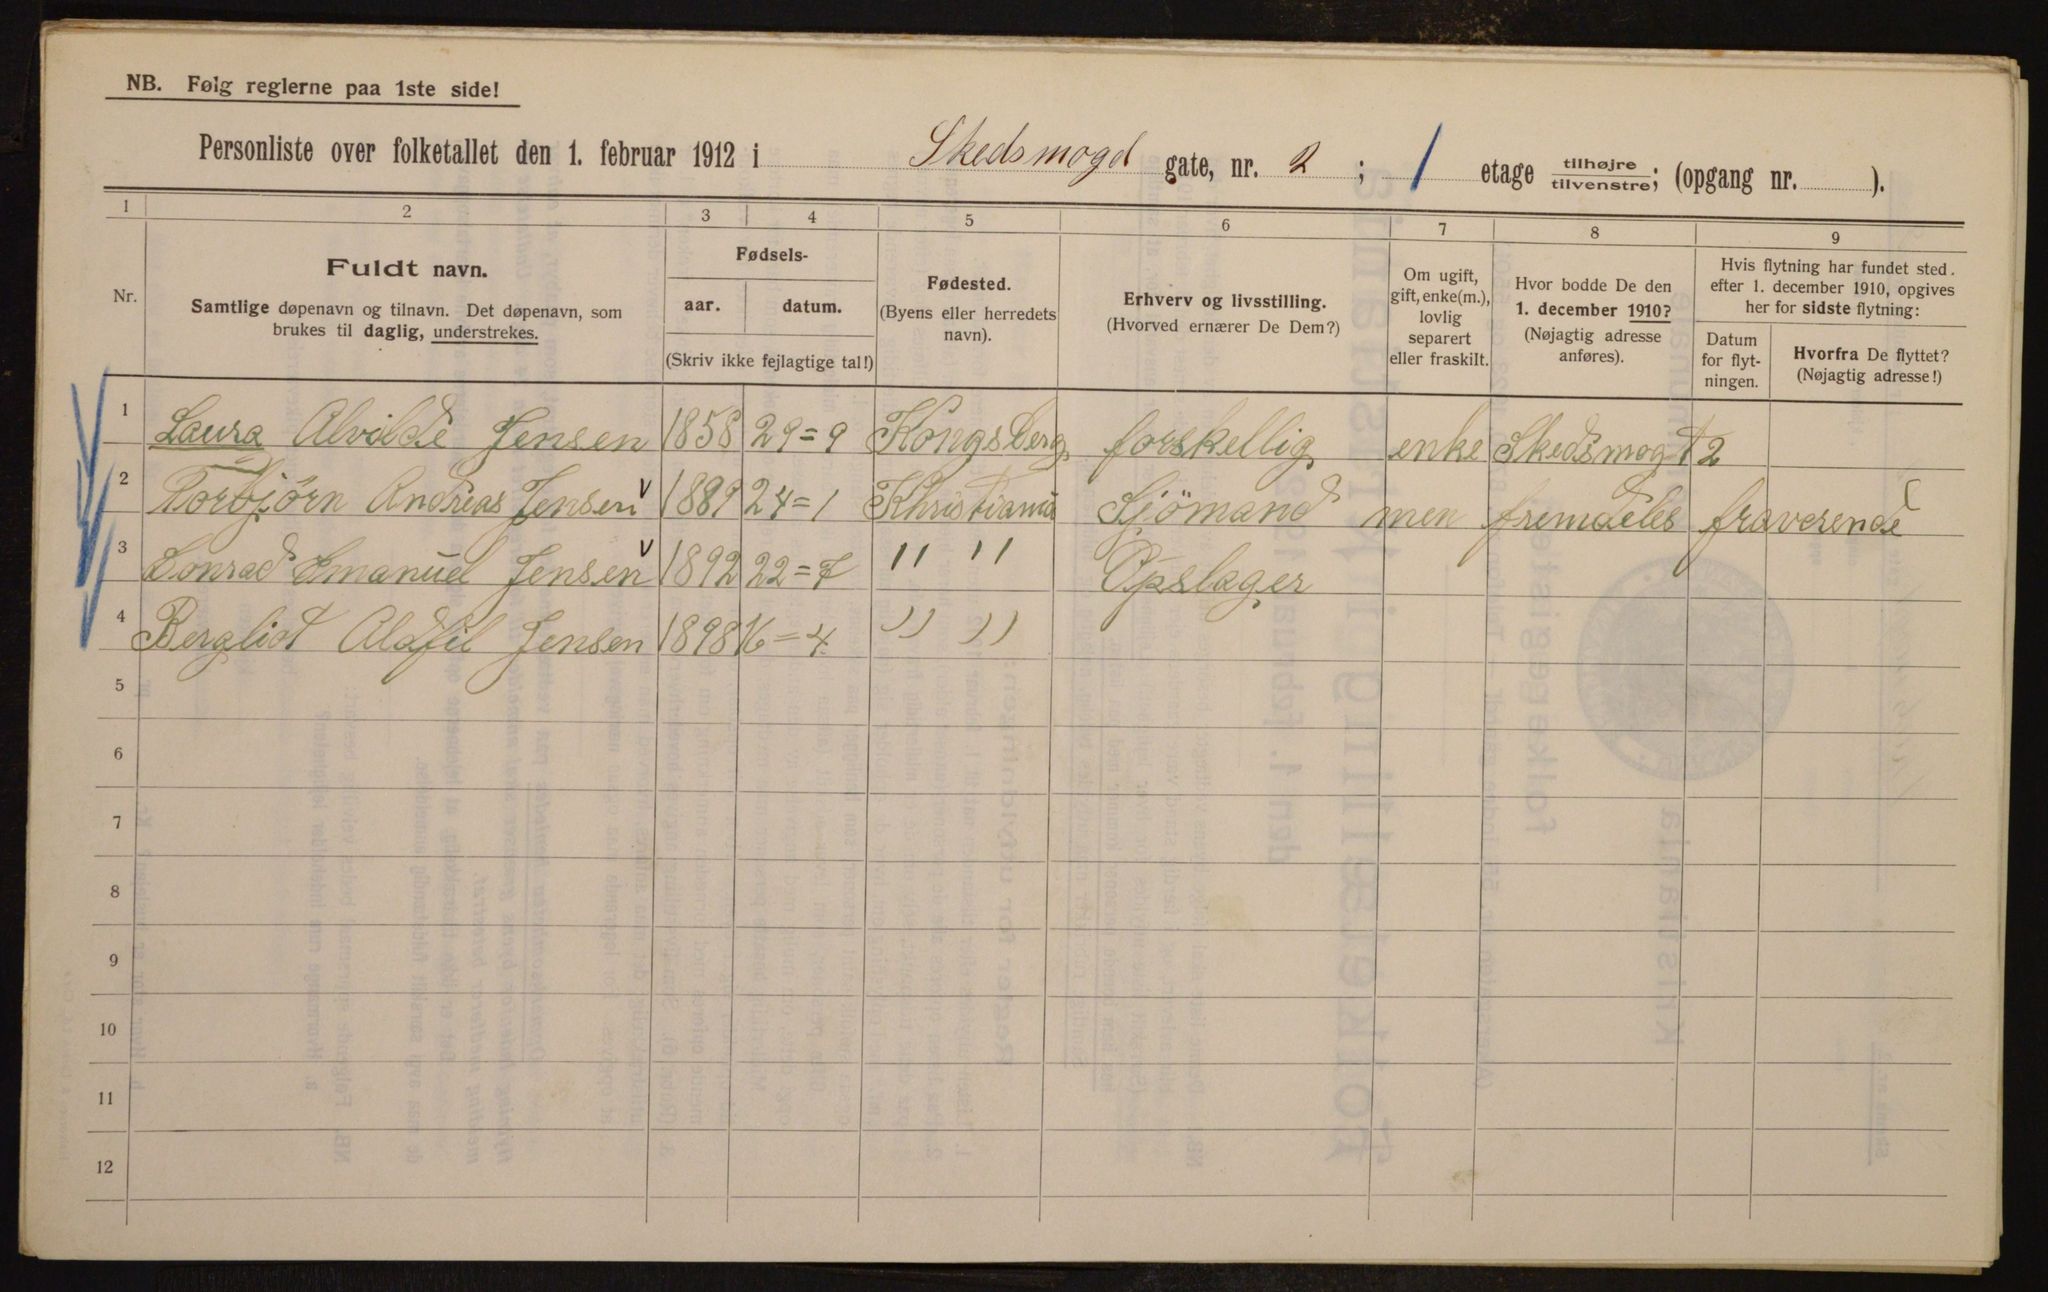 NB. Følg reglerne paa 1ste side!
Personliste over folketallet den 1. februar 1912 i Skedsmogd gate, nr. 2 ; 1 etage tilhøjre/tilvenstre; (opgang nr. ).
1 2 3 4 5 6 7 8 9
Nr.
Fuldt navn.
Samtlige døpenavn og tilnavn. Det døpenavn, som
brukes til daglig, understrekes.
Fødsels-
aar. datum.
(Skriv ikke fejlagtige tal!)
Fødested.
(Byens eller herredets
navn).
Erhverv og livsstilling.
(Hvorved ernærer De Dem?)
Om ugift,
gift, enke(m.),
lovlig
separert
eller fraskilt.
Hvor bodde De den
1. december 1910?
(Nøjagtig adresse
anføres).
Hvis flytning har fundet sted
efter 1. december 1910, opgives
her for sidste flytning:
Datum
for flyt-
ningen.
Hvorfra De flyttet?
(Nøjagtig adresse!)
1 Laura Alvilde Jensen 1858 29=9 Kongsberg forskellig enke Skedsmogt 2
2 Torbjørn Andreas Jensen 1889 24=1 Khristiania Sjömand men fremdeles fraverende
3 Conrad Emanuel Jensen 1892 22=7 " " Opslager
4 Bergliot Aldfil Jensen 1898 16=4 " "
5
6
7
8
9
10
11
12